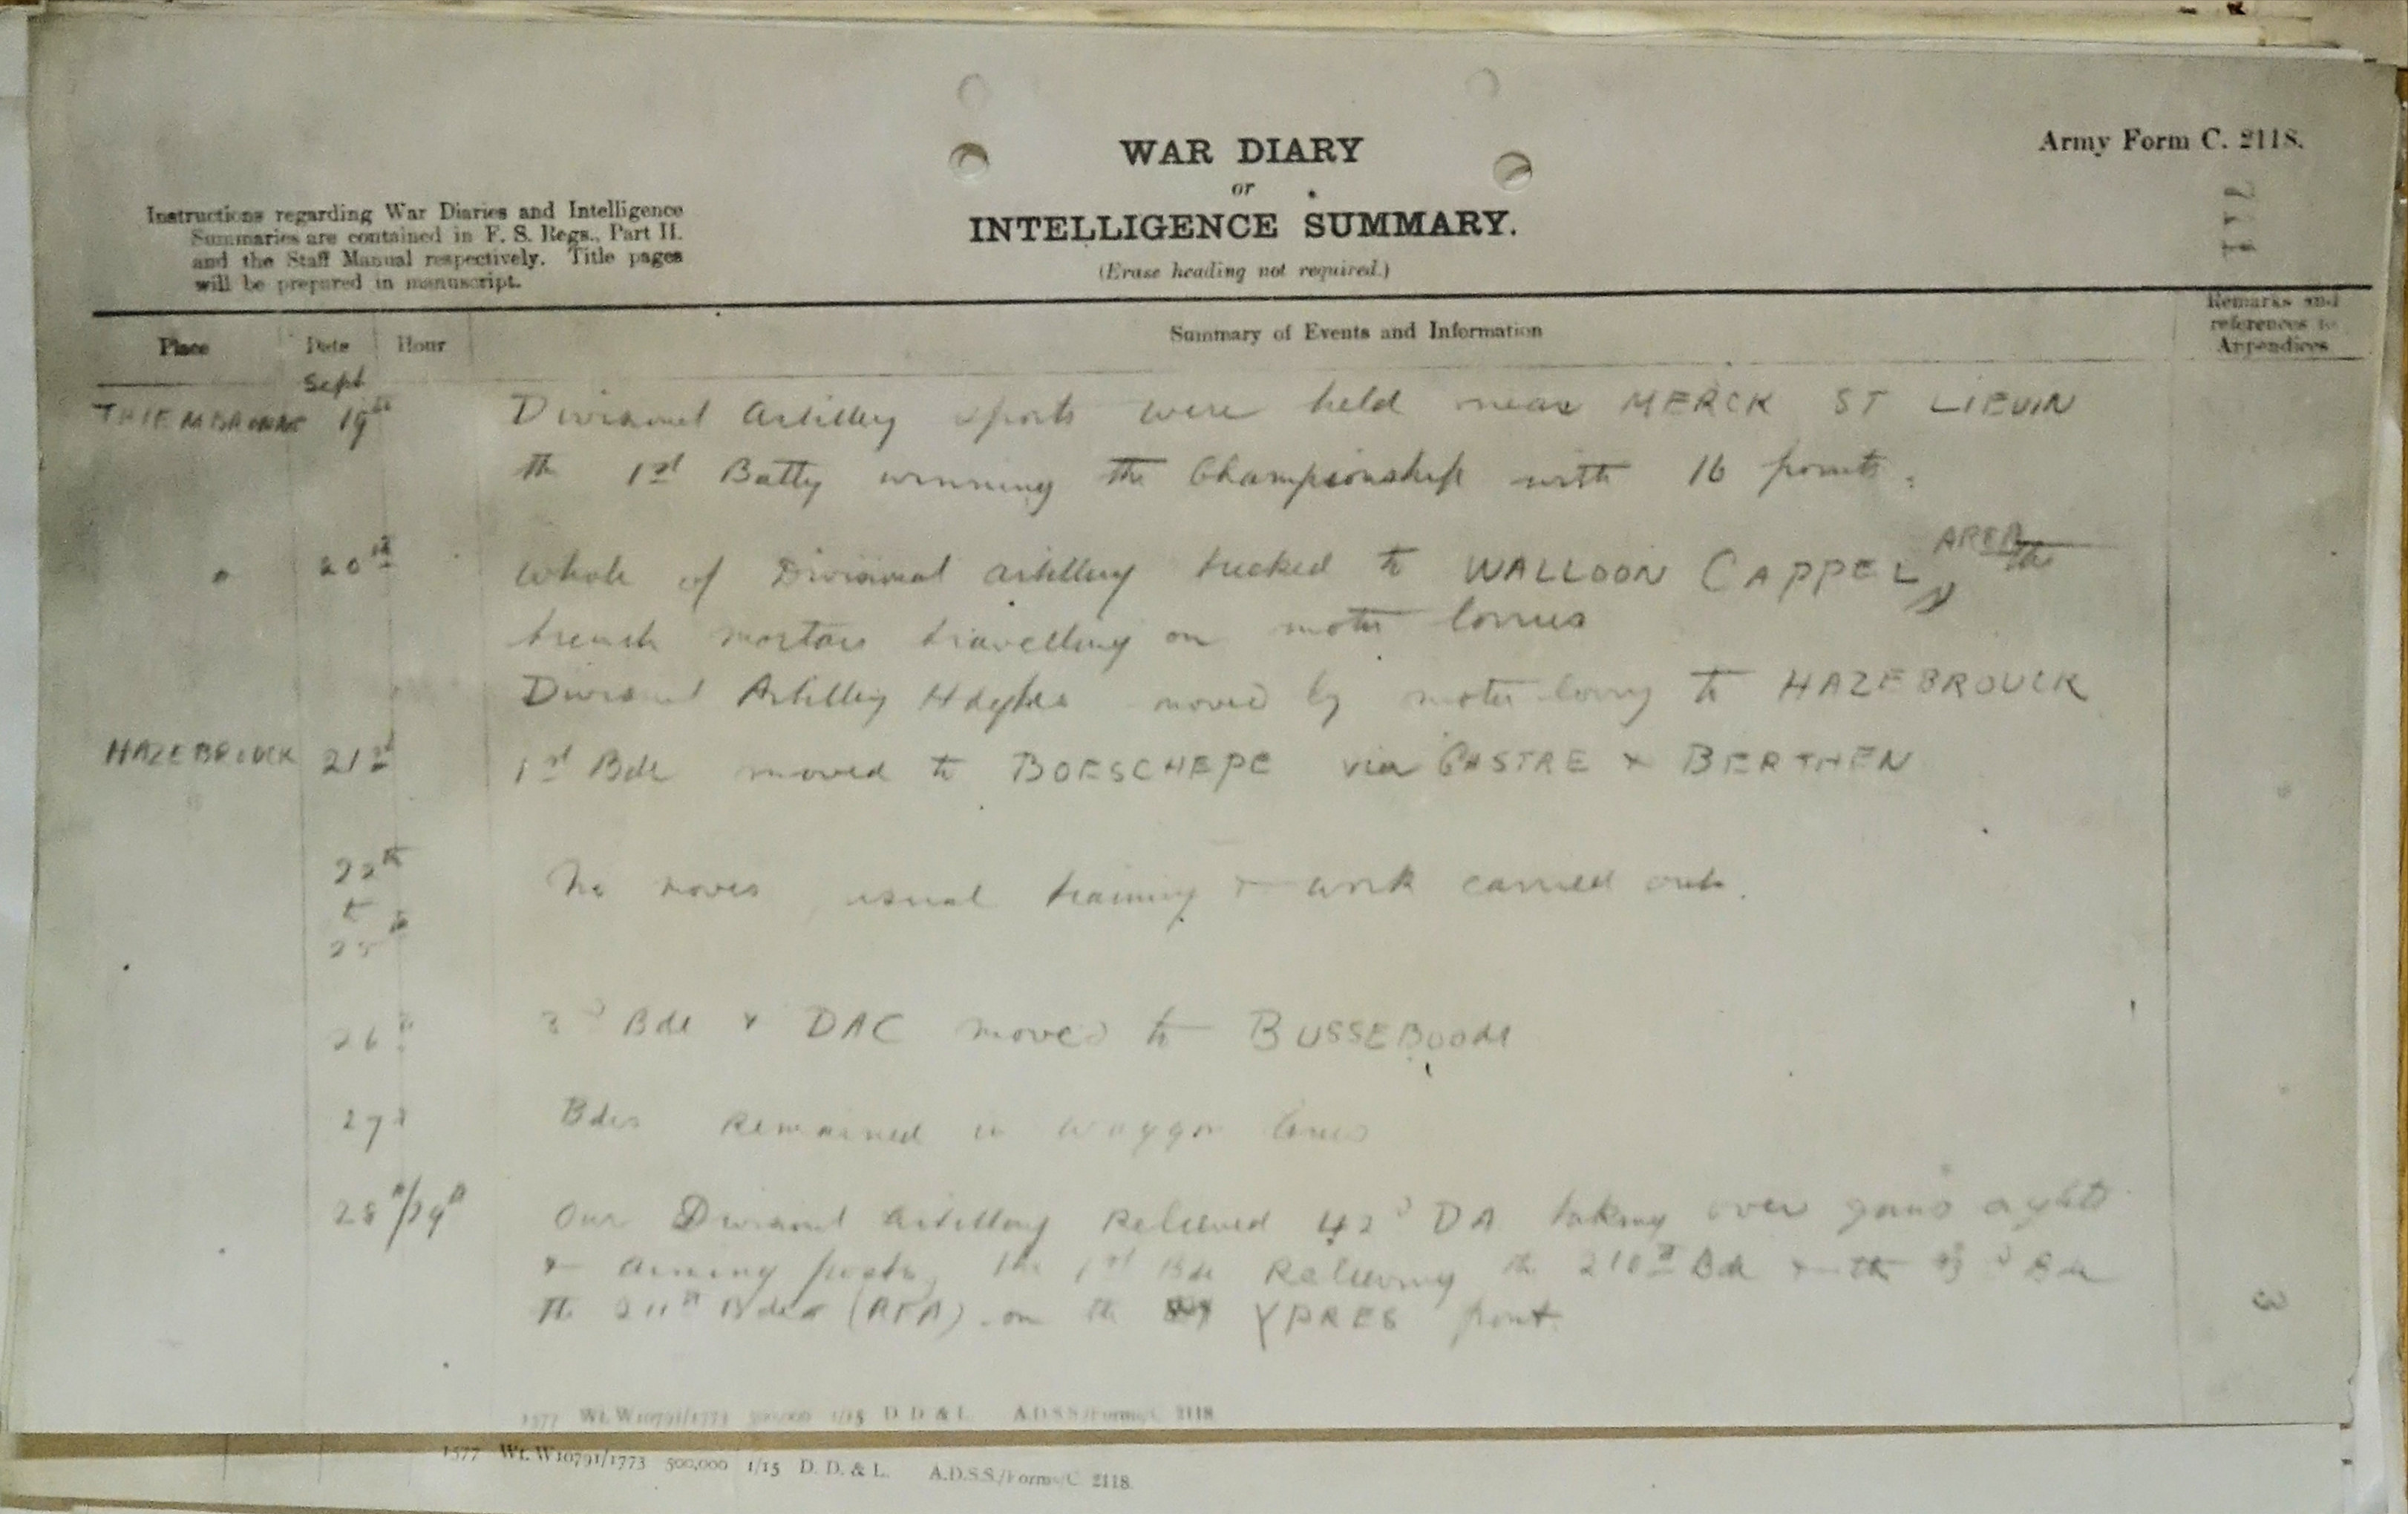 Army Form C. 2118.
WAR DIARY
or
INTELLIGENCE SUMMARY.
(Erase heading not required.)
Instructions regarding War Diaries and Intelligence
Summaries are contained in F. S. Regs., Part II.
and the Staff Manual respectively. Title pages
will be prepared in manuscript.
Place Date Hour Summary of Events and Information Remarks and
references to
Appendices
Sept
THIEMBRONNE 19th Divisional Artillery sports were held near MERCK ST LIEVIN
the 1st Batty winning the Championship with 16 points.
" 20th Whole of Divisional Artillery trecked to WALLOON CAPPEL AREA
trench mortars travelling on motor lorries
Divisional Artillery Hdqtrs moved by motor lorry to HAZEBROUCK
HAZEBROUCK 21st 1st Bde moved to BOESCHEPE via CASTRE & BERTHEN
22nd
to
25th
No moves, usual training & work carried out.
26th 2nd Bde & DAC moved to BUSSEBOOM
27th Bdes Remained in Waggon lines
28th/29th Our Divisional Artillery Relieved 42nd DA taking over guns sights
& aiming posts, the 1st Bde Relieving the 210th Bde & the 2nd Bde
the 211th Bde (RFA) on the YPRES front.
3
1577 Wt. W10791/1773 500,000 1/15 D. D. & L. A.D.S.S./Forms/C. 2118
1577 Wt. W10791/1773 500,000 1/15 D. D. & L. A.D.S.S./Forms/C. 2118.